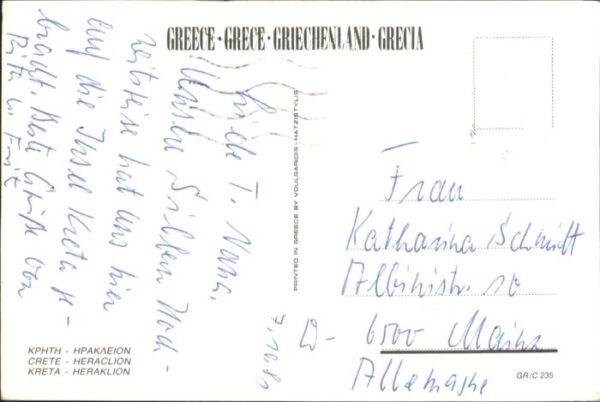 GREECE · GRECE · GRIECHENLAND · GRECIA
Liebe T. Nana,
Unsere Silberhoch-
zeitsreise hat uns hier
auf die Insel Kreta ge-
bracht. Beste Grüße von
Rita u. Fritz
PRINTED IN GREECE BY VOULGARIDIS-HATZISTYLIS
Frau
Katharina Schmidt
Albinistr. 10
D-
6500 Mainz
Allemagne
ΚΡΗΤΗ - ΗΡΑΚΛΕΙΟΝ
CRETE - HERACLION
KRETA - HERAKLION
GR/C 235